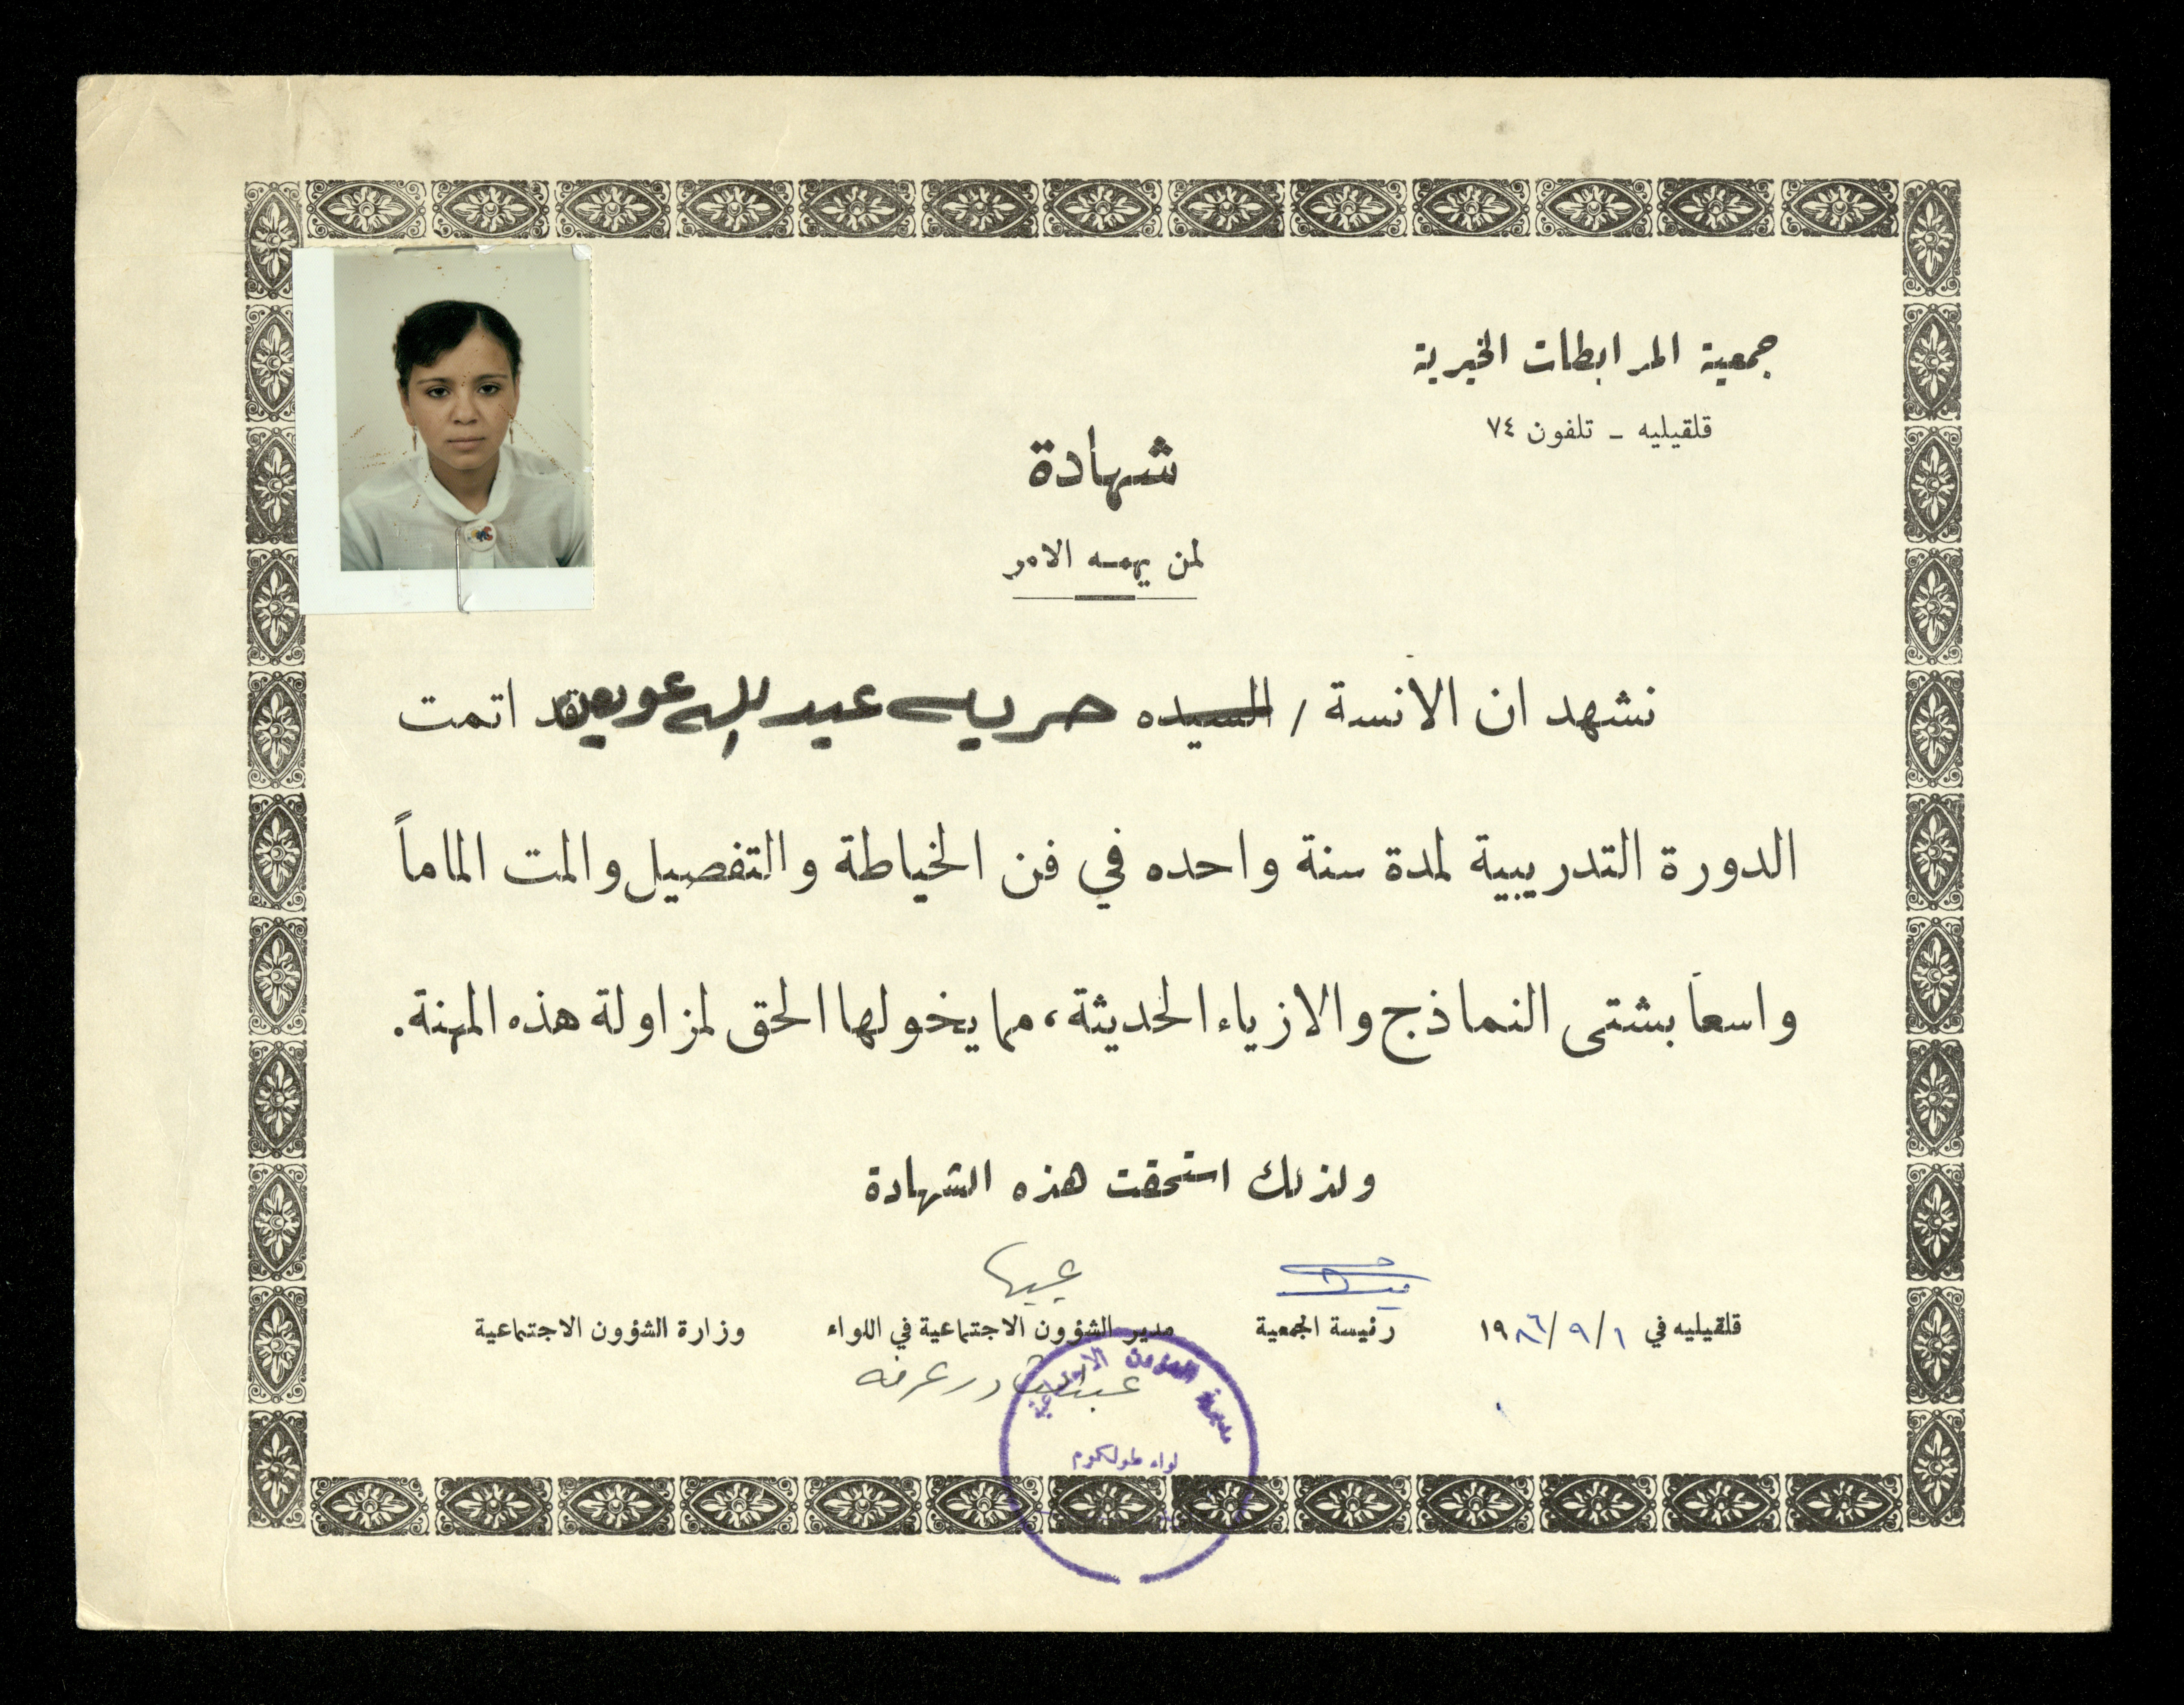 جمعية المرابطات الخيرية
قلقيليه - تلفون ٧٤
شهادة
لمن يهمه الامر
نشهد ان الانسة / السيده حريه عبد الله عويص قد اتمت
الدورة التدريبية لمدة سنة واحده في فن الخياطة والتفصيل والمت الماماً
واسعاً بشتى النماذج والازياء الحديثة، مما يخولها الحق لمزاولة هذه المهنة.
ولذلك استحقت هذه الشهادة
قلقيليه في ١/٩/١٩٨٦ رئيسة الجمعية مدير الشؤون الاجتماعية في اللواء وزارة الشؤون الاجتماعية
عبد القادر عرفه
مديرية الشؤون الاجتماعية
لواء طولكرم